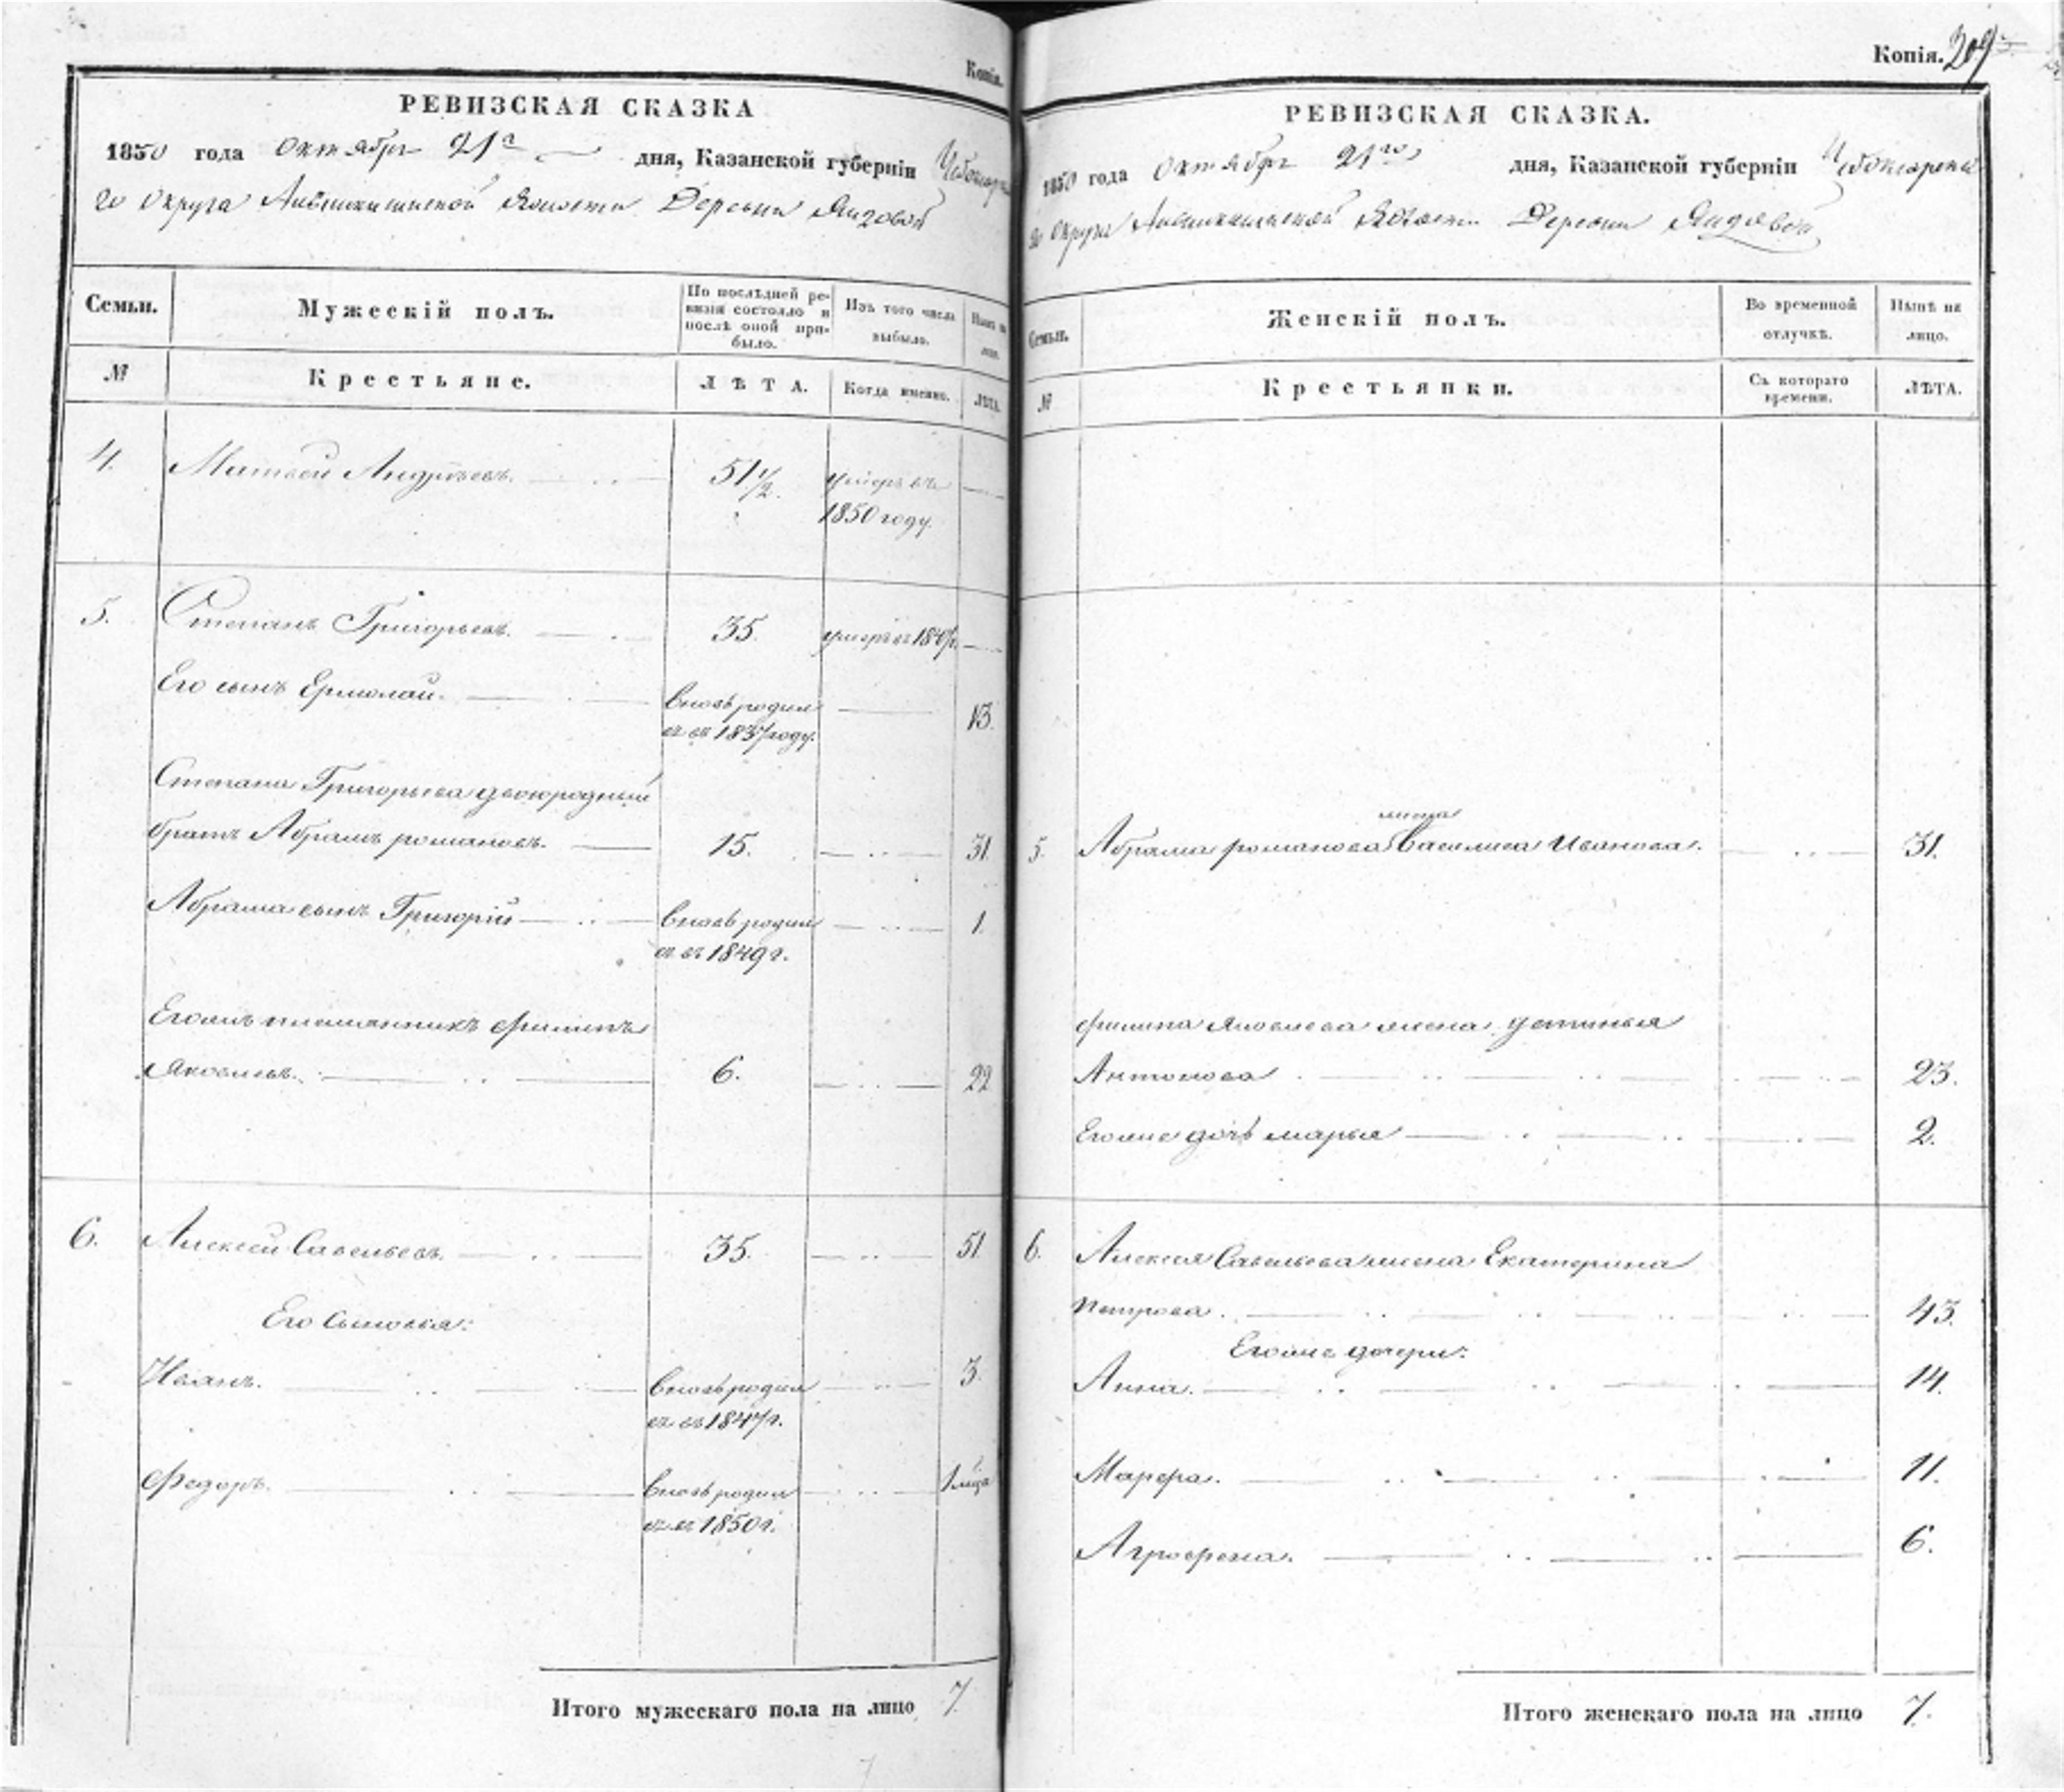 Копія.
РЕВИЗСКАЯ СКАЗКА
1850 года Октября 21го дня, Казанской губерніи Чебоксарска
го Округа Волости Деревни Яндовой
Семьи.
Мужескій полъ.
По послѣдней ре-
визіи состояло и
послѣ оной при-
было.
Изъ того числа
выбыло.
Нынѣ на
лицо.
№
Крестьяне.
ЛѢТА.
Когда именно.
ЛѢТА.
4. Матвей Андреевъ. 51 1/2. умеръ въ
1850 году.
5. Степанъ Григорьевъ. 35. умеръ въ 1847г.
Его сынъ Ермолай. вновь родил 13.
ся въ 1837 году.
Степана Григорьева двоюродный
братъ Абрамъ романовъ. 15. 31.
Абрама сынъ Григорій вновь родил 1.
ся въ 1849 г.
Егожъ племянникъ филипъ
Яковлевъ. 6. 22
6. Алексей Савельевъ. 35. 51.
Его сыновья:
Иванъ. вновь родил 3.
ся въ 1847 г.
Федоръ. вновь родил 1 м̃ца
ся въ 1850 г.
Итого мужескаго пола на лицо 7.
Копія. 209
РЕВИЗСКАЯ СКАЗКА.
1850 года Октября 21го дня, Казанской губерніи Чебоксарска
го Округа Волости Деревни Яндовой
Семьи.
Женскій полъ.
Во временной
отлучкѣ.
Нынѣ на
лицо.
№
Крестьянки.
Съ котораго
времени.
ЛѢТА.
жена
5. Абрама романова Василиса Иванова. 31.
филипа Яковлева жена устинья
Антонова 23.
Егоже дочь марья 2.
6. Алексея Савельева жена Екатерина
Петрова. 43.
Егоже дочери:
Анна. 14.
Марфа. 11.
Агрофена. 6.
Итого женскаго пола на лицо 7.